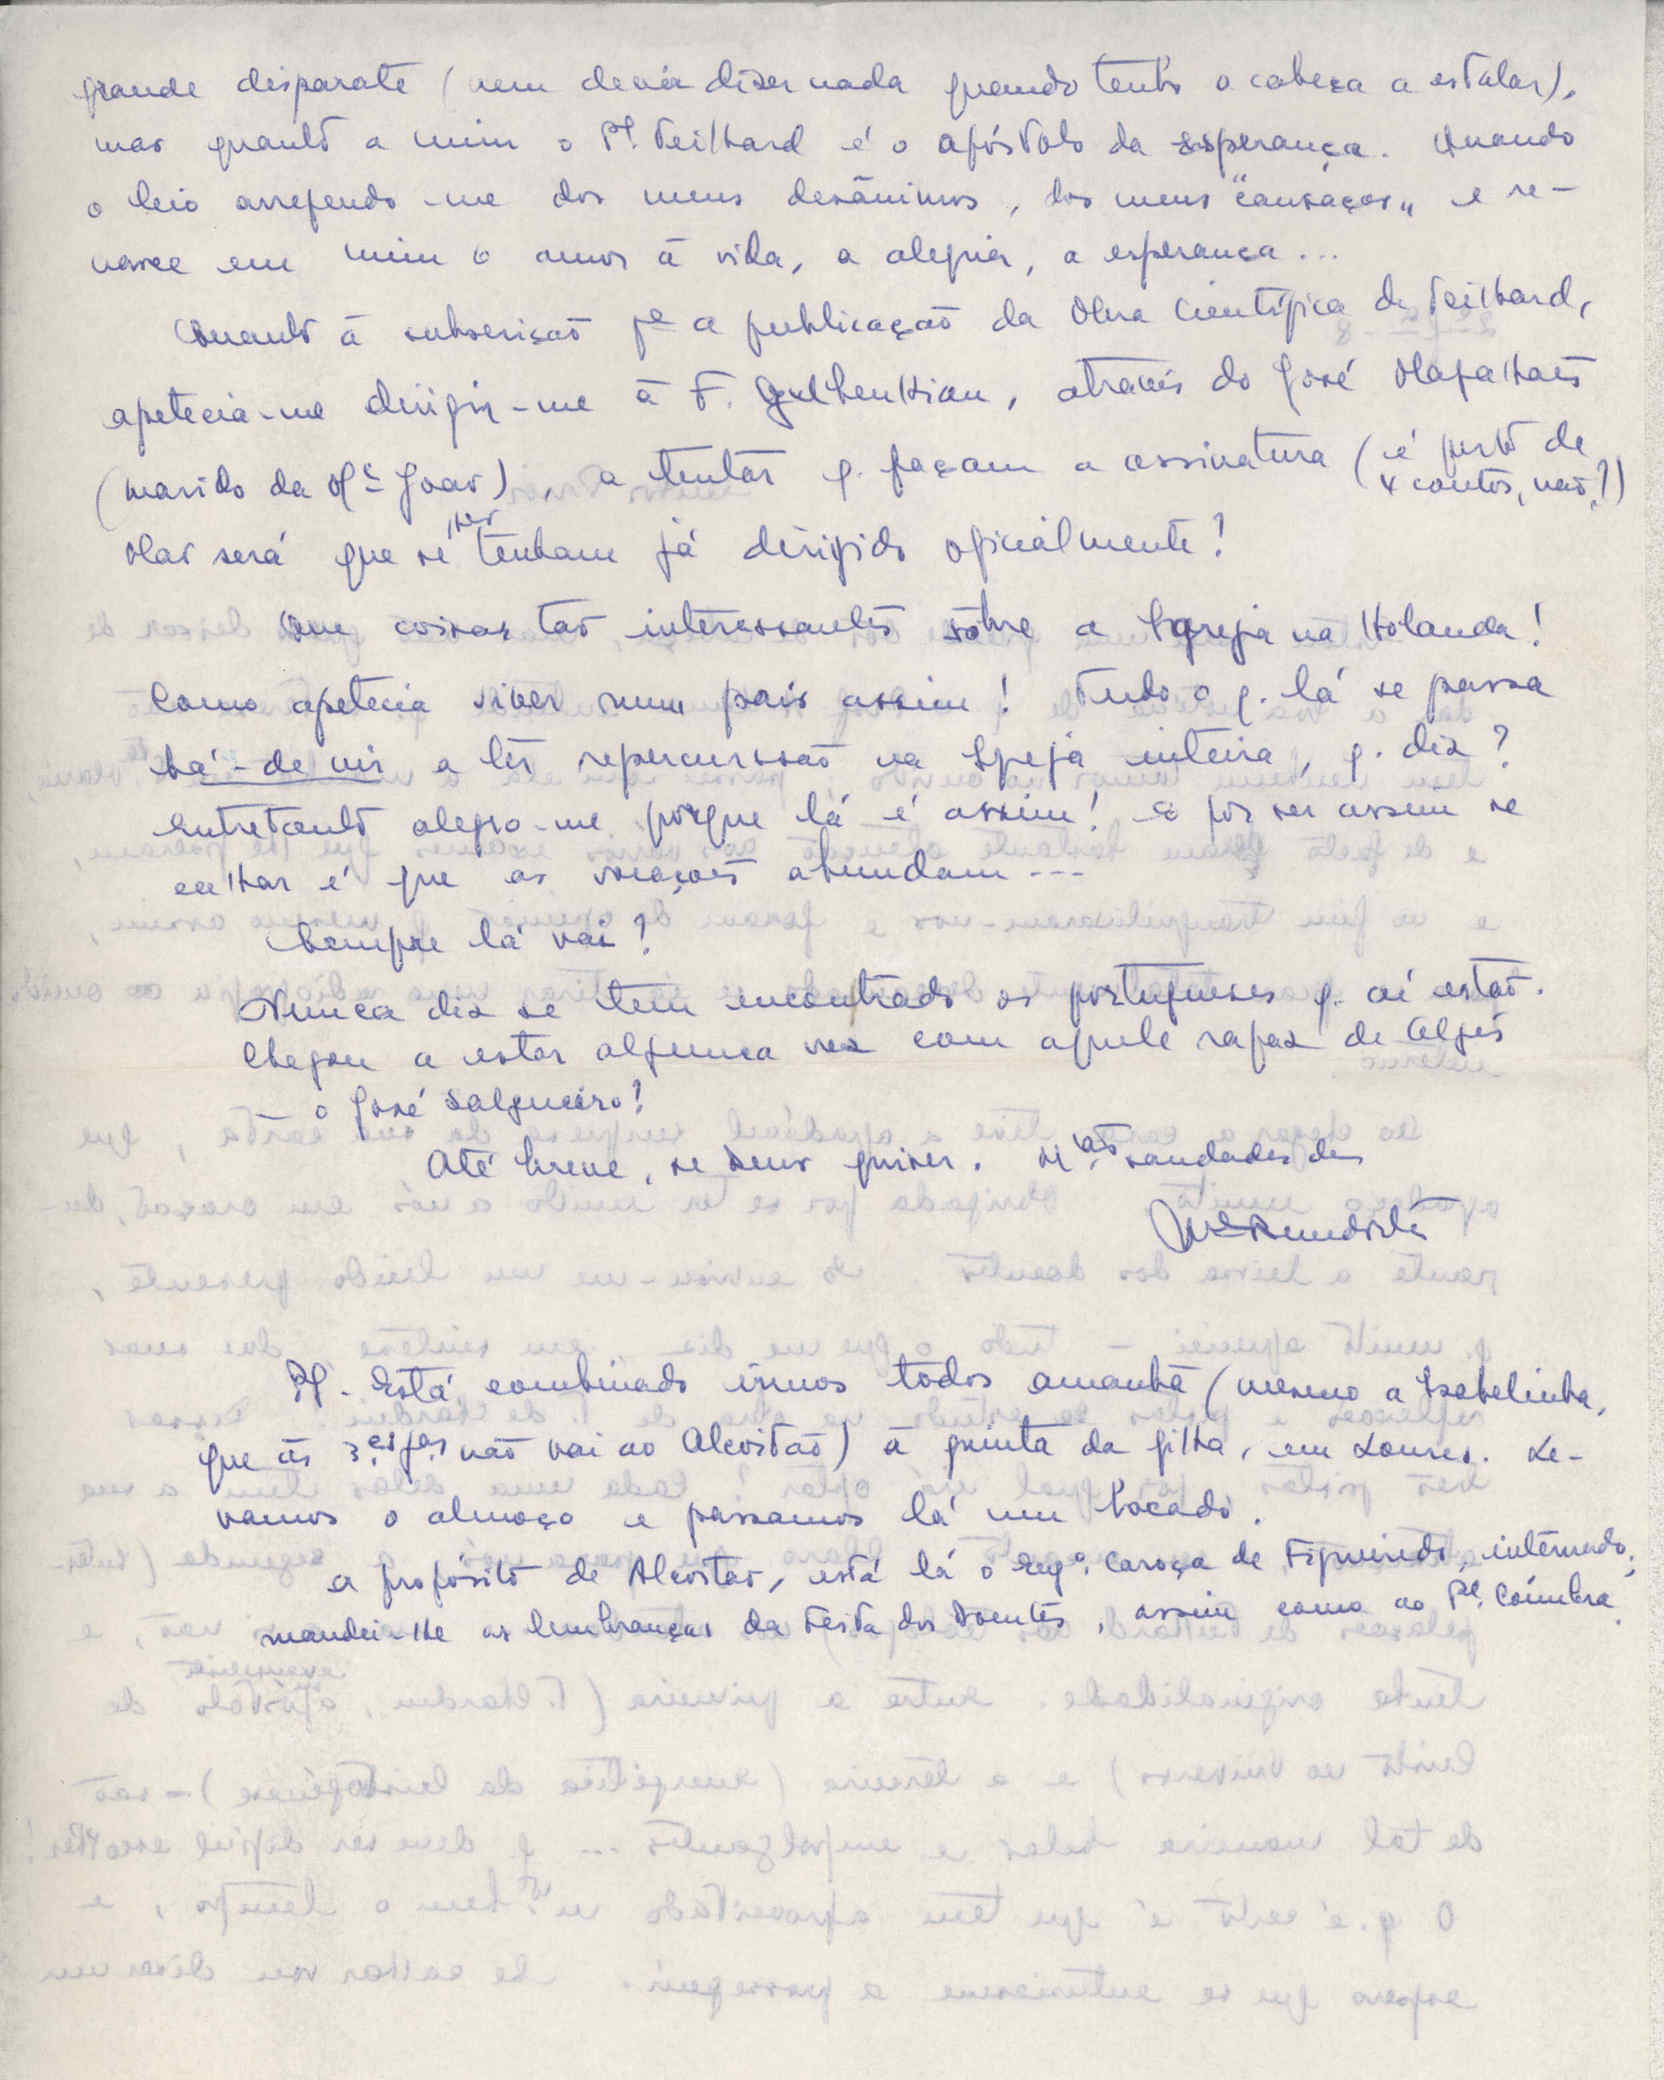 grande disparate (nem devia dizer nada quando tenho a cabeça a estalar),
mas quanto a mim o Pe. Teilhard é o apóstolo da esperança. Quando
o leio arrependo-me dos meus desânimos, dos meus "cansaços" e re-
nasce em mim o amor à vida, a alegria, a esperança...
Quanto à subscrição pª a publicação da Obra Científica de Teilhard,
apetecia-me dirigir-me à F. Gulbenkian, através do José Magalhães
(marido da Mª João), a tentar q. façam a assinatura (é perto de
4 contos, não?)
Mas será que se lhes tenham já dirigido oficialmente?
Que coisas tão interessantes sôbre a Igreja na Holanda!
Como apetecia viver num país assim! Tudo o q. lá se passa
há-de vir a ter repercussão na Igreja inteira, q. diz?
Entretanto alegro-me porque lá é assim! E por ser assim se
calhar é que as vocações abundam ---
Sempre lá vai?
Nunca diz se tem encontrado os portugueses q. aí estão.
Chegou a estar alguma vez com aquele rapaz de Algés
– o José Salgueiro?
Até breve, se Deus quiser. Mtas saudades da
PS. Está combinado irmos todos amanhã (mesmo a Isabelinha,
que às 3as fas não vai ao Alcoitão) à quinta da filha, em Loures. Le-
vamos o almoço e passamos lá um bocado.
A propósito de Alcoitão, está lá o Engº. Caroça de Figueiredo, internado;
mandei-lhe as lembranças da Festa dos Doentes, assim como ao Pe. Coimbra.